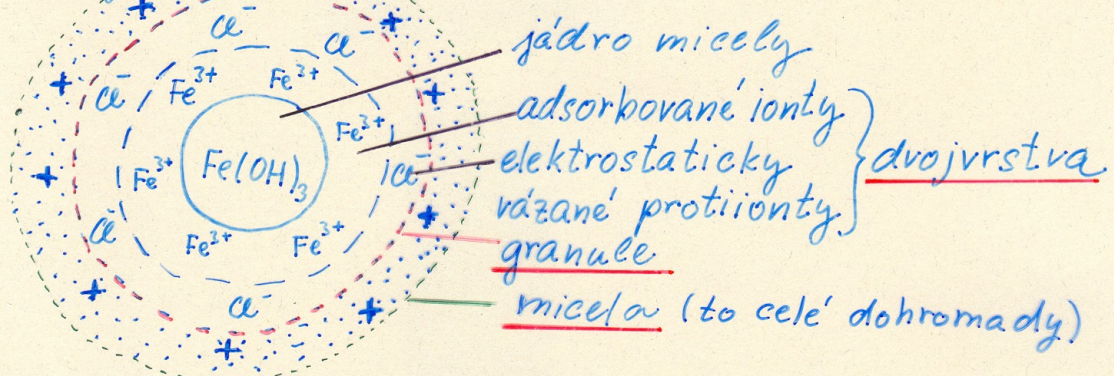 Cl⁻
Cl⁻
Cl⁻
Fe³⁺
Fe³⁺
Fe³⁺
Fe(OH)₃
Fe³⁺
Cl⁻
Cl⁻
Fe³⁺
Fe³⁺
Cl⁻
+
+
+
+
+
+
+
+
jádro micely
adsorbované ionty
elektrostaticky
vázané protiionty
} dvojvrstva
granule
micela (to celé dohromady)